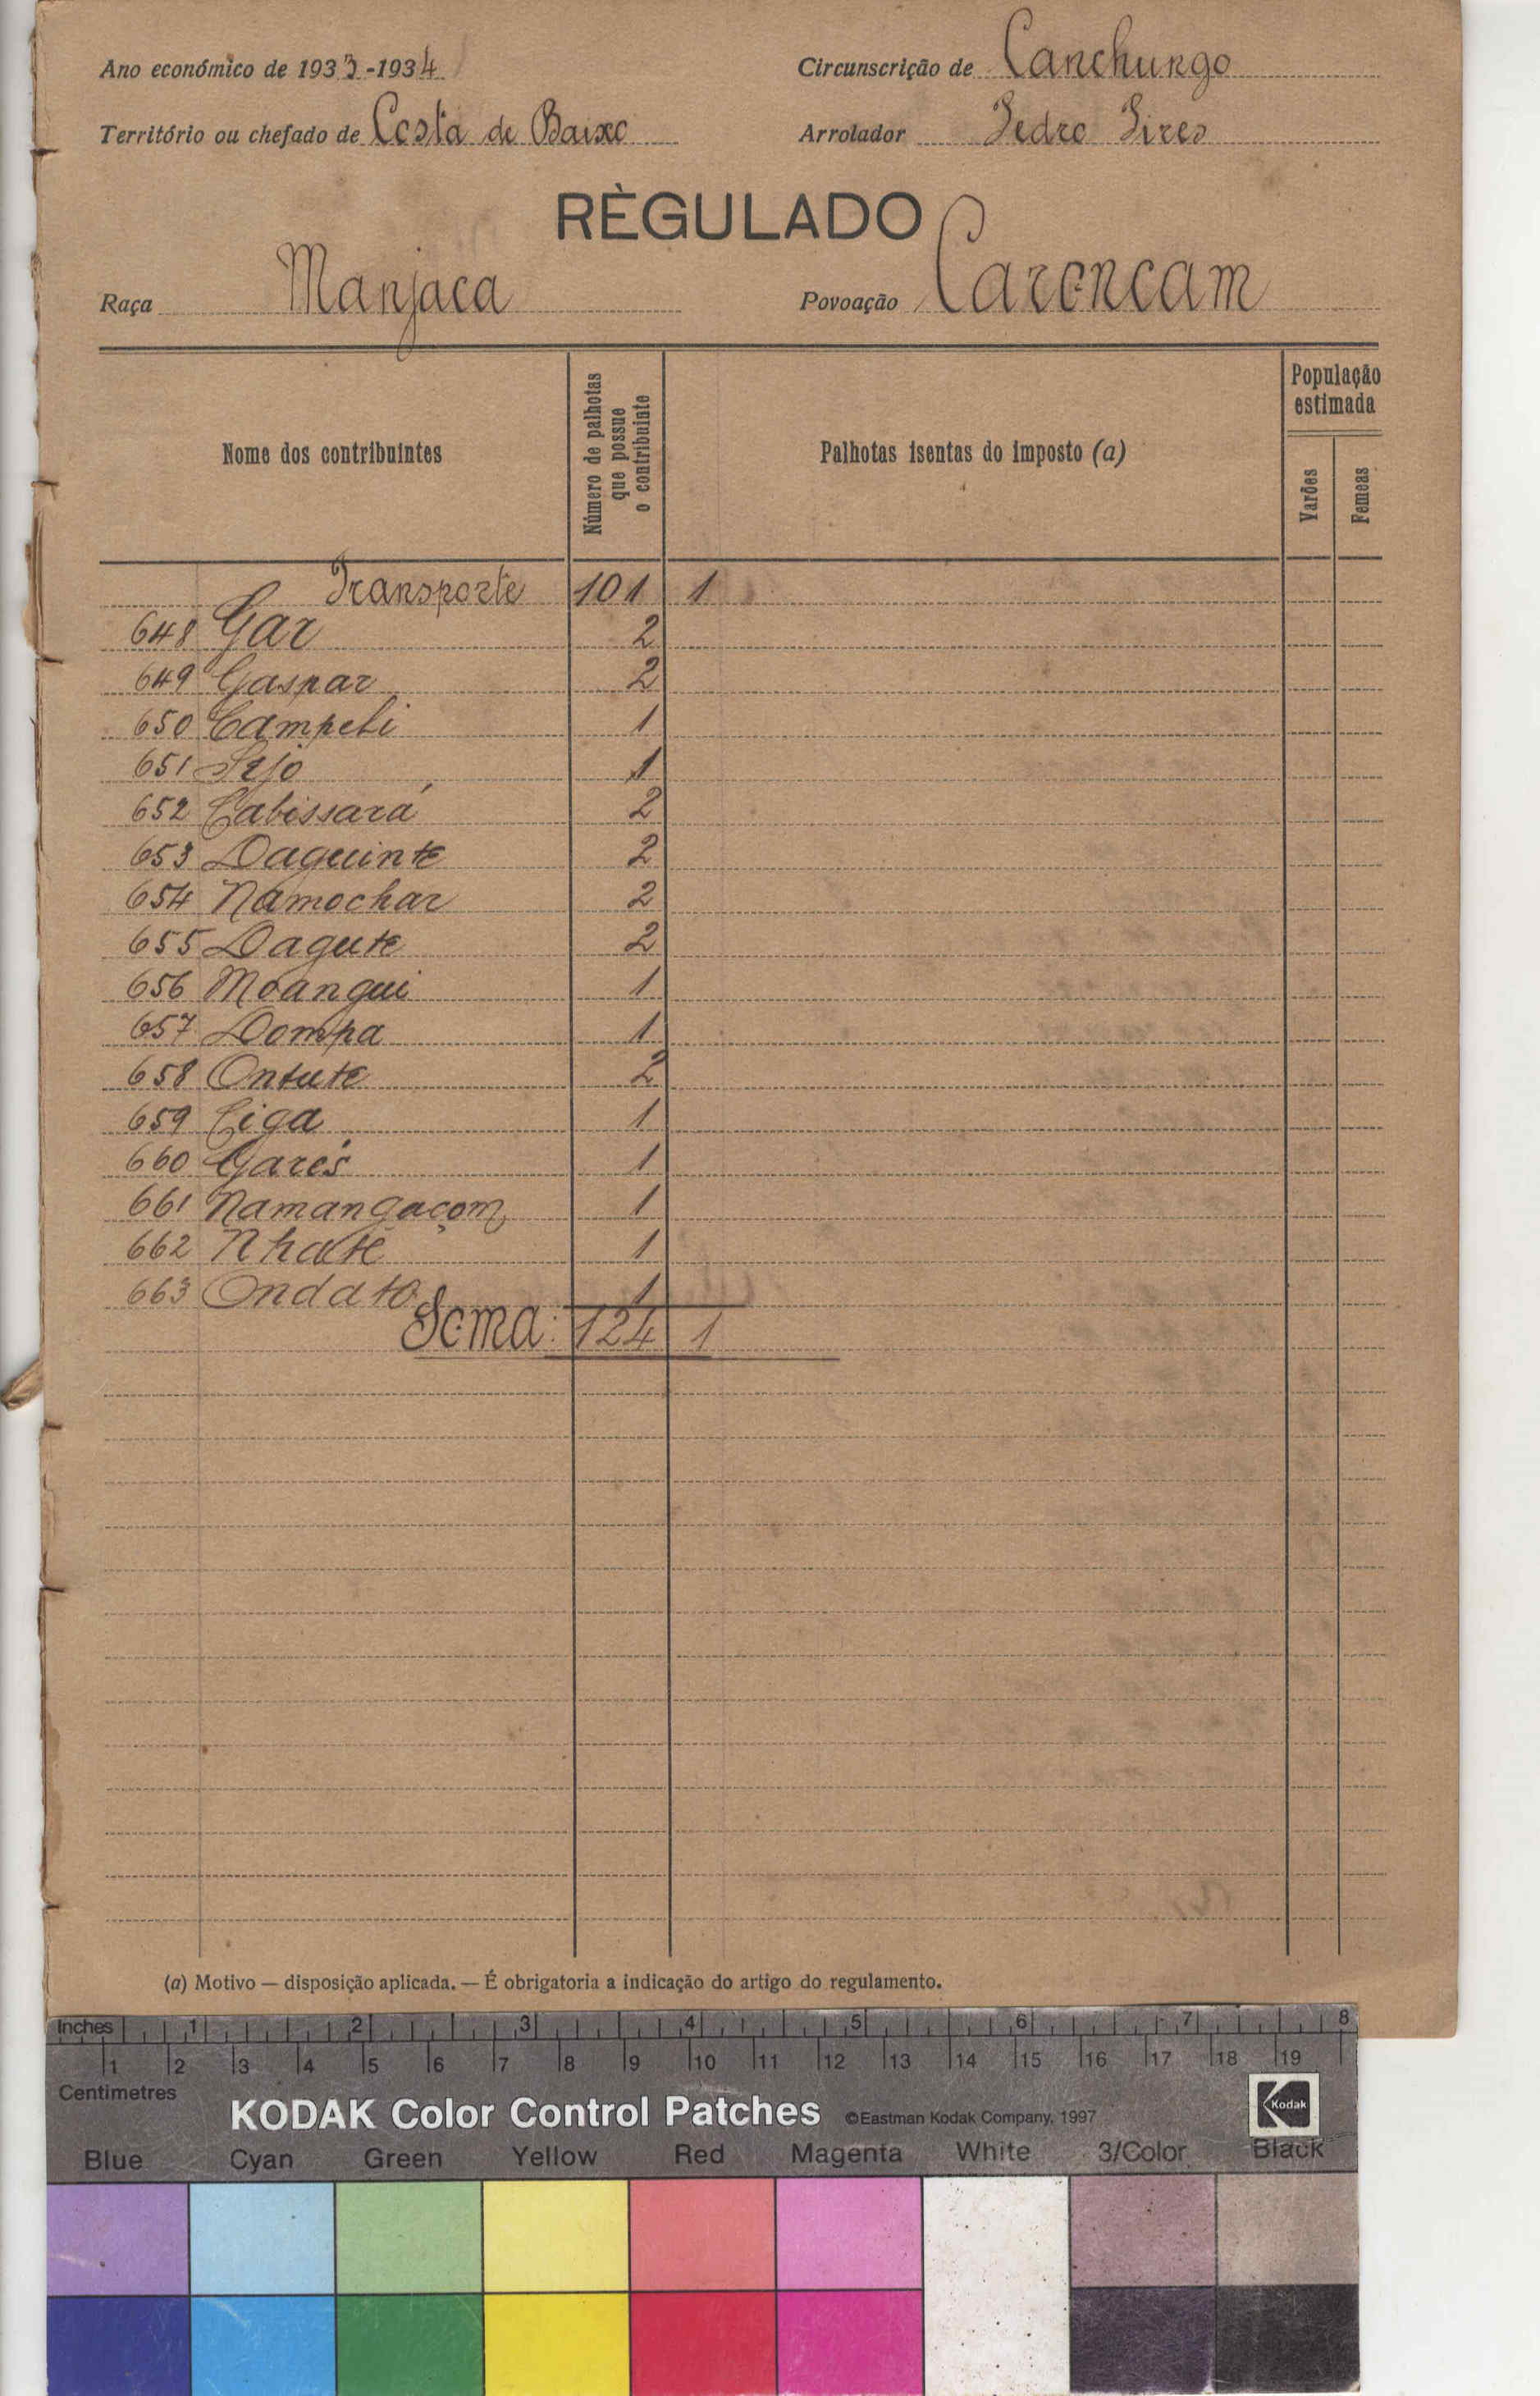 Ano económico de 1933-1934
Circunscrição de Canchungo
Território ou chefado de Costa de Baixo
Arrolador Pedro Pires
RÈGULADO
Raça Manjaca
Povoação Caroncam
Nome dos contribuintes
Número de palhotas que possue o contribuinte
Palhotas isentas do imposto (a)
População estimada
Varões
Femeas
Transporte 101 1
648 Gar 2
649 Gaspar 2
650 Campebi 1
651 1
652 Cabissará 2
653 Daguinte 2
654 Namochar 2
655 Dagute 2
656 Moangui 1
657 Dompa 1
658 Ontute 2
659 Ciga 1
660 Garés 1
661 Namangaçom 1
662 Nhaté 1
663 Ondato 1
Soma: 124 1
(a) Motivo — disposição aplicada. — É obrigatoria a indicação do artigo do regulamento.
Inches 1 2 3 4 5 6 7 8
1 2 3 4 5 6 7 8 9 10 11 12 13 14 15 16 17 18 19
Centimetres
KODAK Color Control Patches ©Eastman Kodak Company, 1997 Kodak
Blue Cyan Green Yellow Red Magenta White 3/Color Black